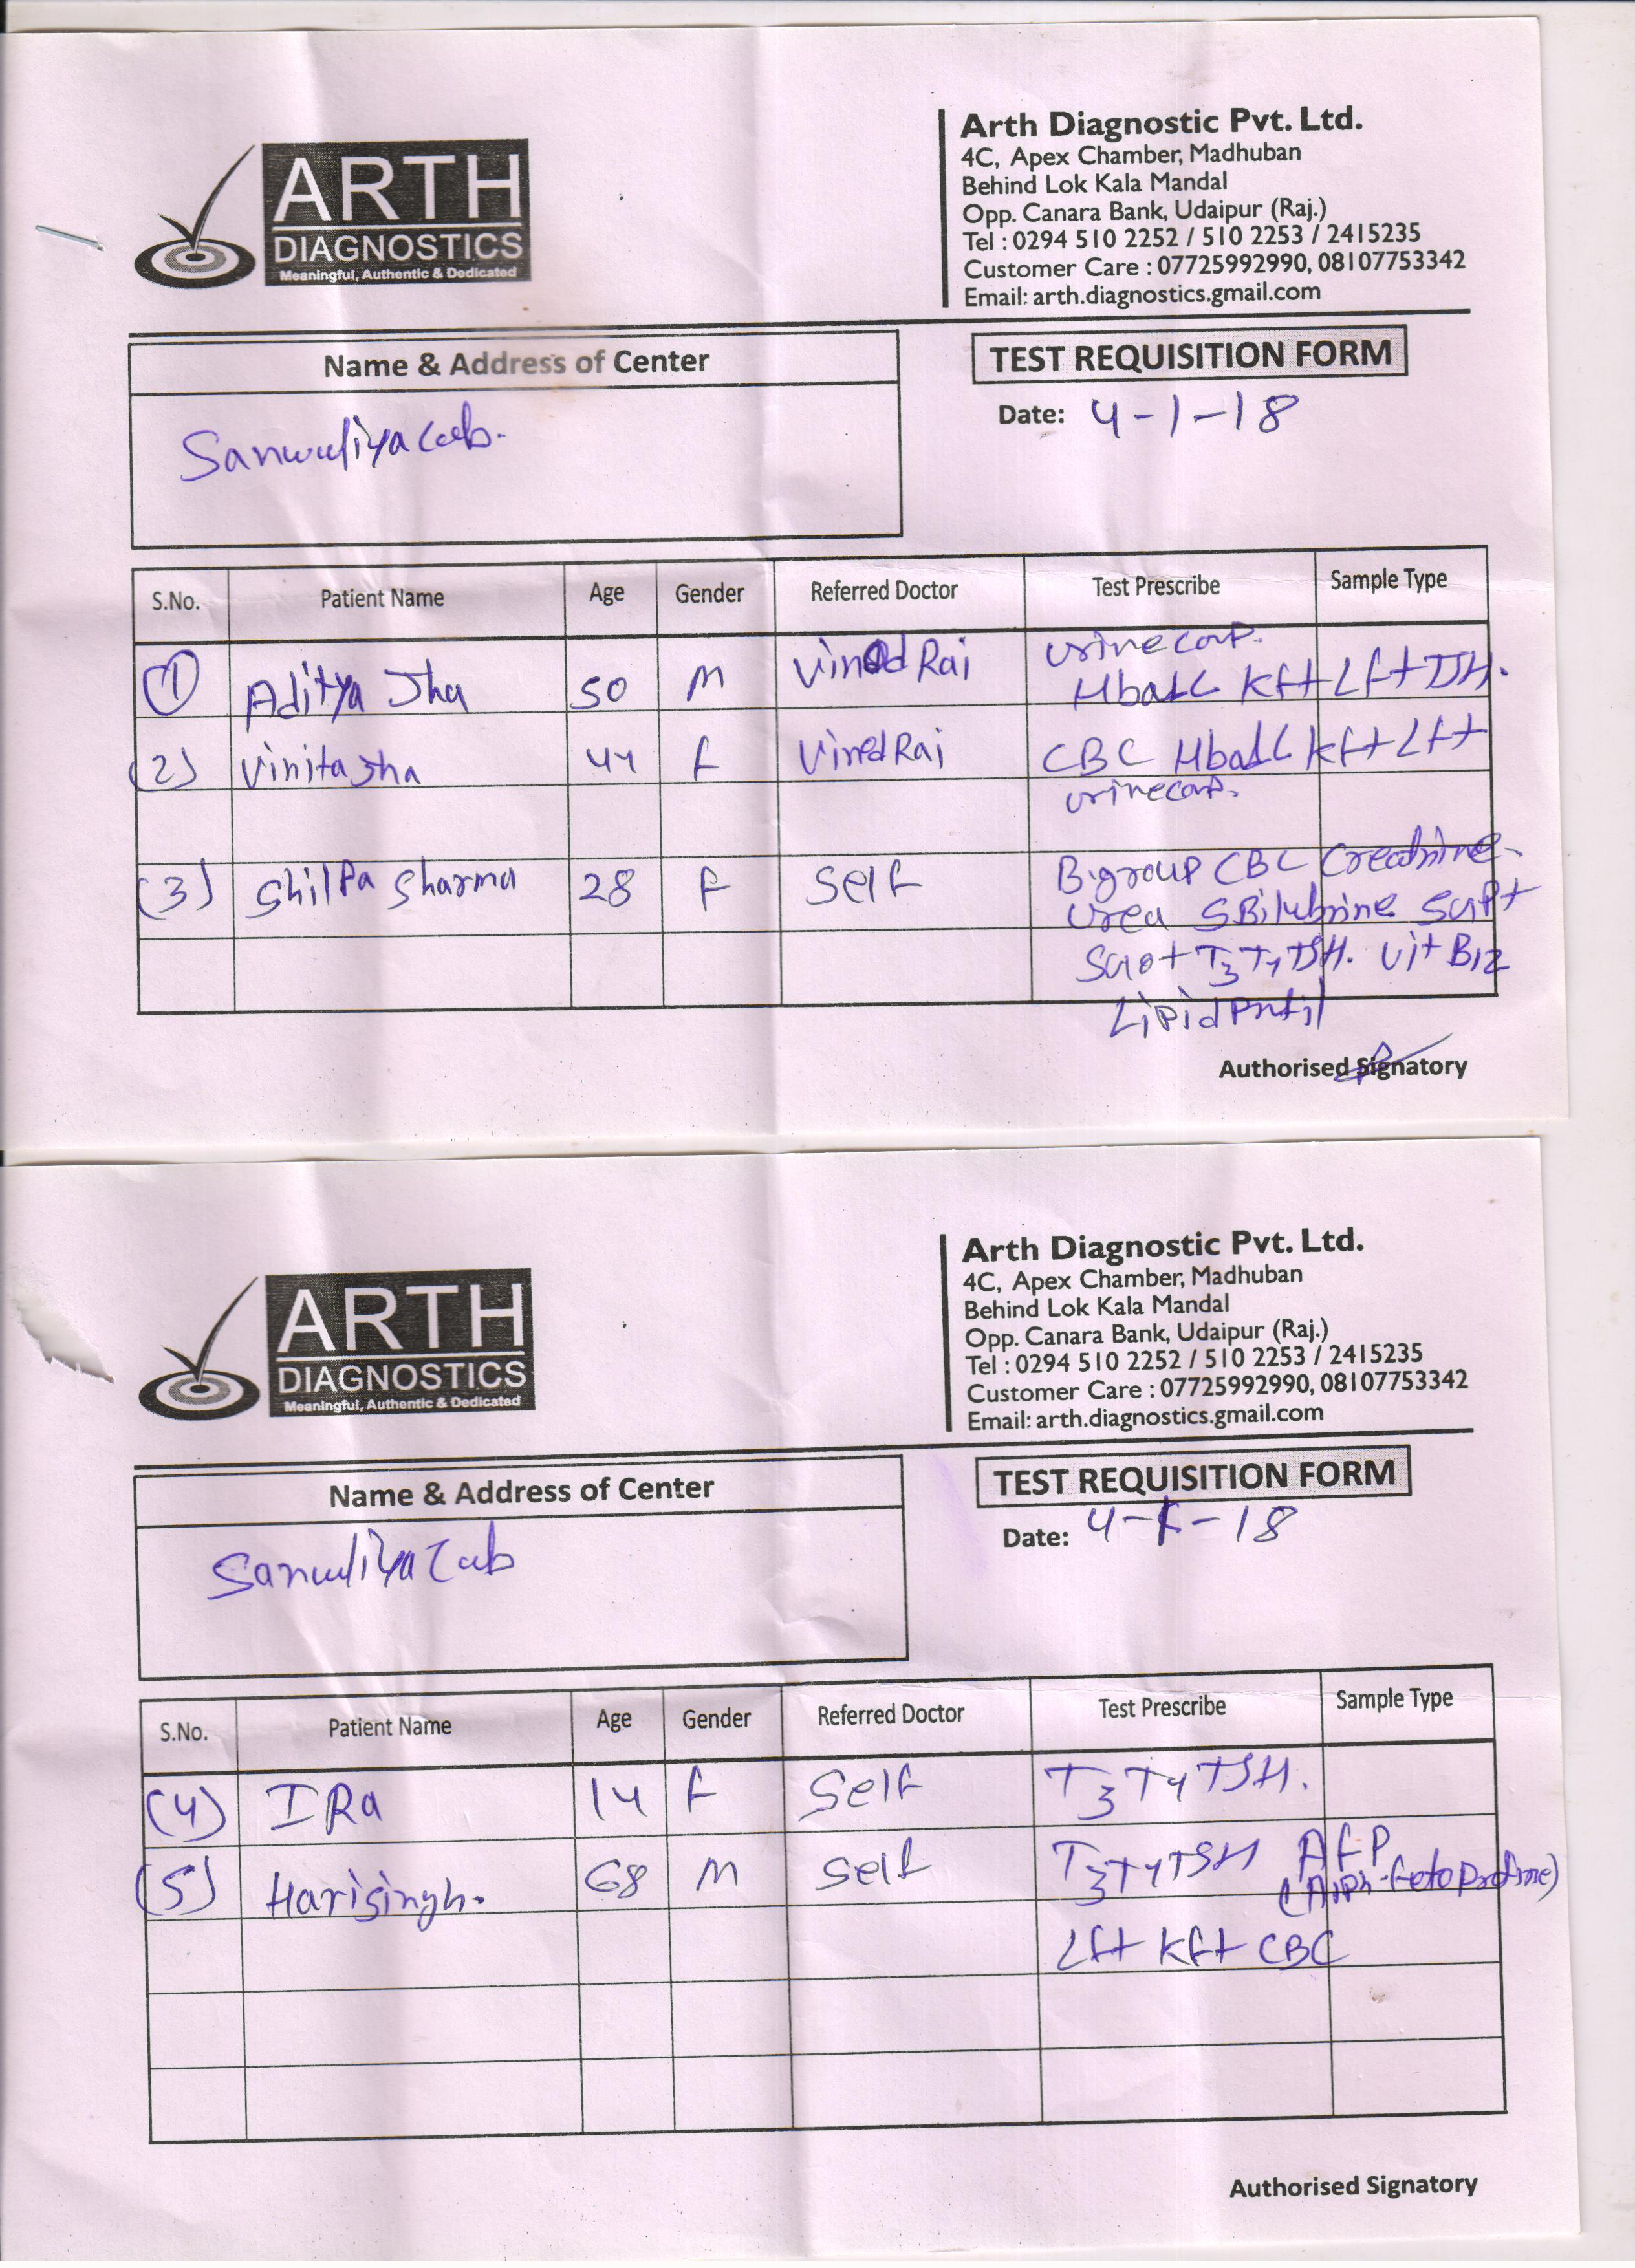 ARTH
DIAGNOSTICS
Meaningful, Authentic & Dedicated
Arth Diagnostic Pvt. Ltd.
4C, Apex Chamber, Madhuban
Behind Lok Kala Mandal
Opp. Canara Bank, Udaipur (Raj.)
Tel : 0294 510 2252 / 510 2253 / 2415235
Customer Care : 07725992990, 08107753342
Email: arth.diagnostics.gmail.com
Name & Address of Center
TEST REQUISITION FORM
Date: 4-1-18
Sanwuliya Lab.
S.No. Patient Name Age Gender Referred Doctor Test Prescribe Sample Type
urine comp.
(1) Aditya Jha 50 M Vinod Rai HbA1C Kft Lft TSH.
(2) Vinita Jha 44 F Vinod Rai CBC HbA1C Kft Lft
urine comp.
(3) Shilpa Sharma 28 F Self B.group CBC Creatnine.
Urea SBilubrine SGPt
SGOt T3 T4 TSH. Vit B12
Lipid Prfil
Authorised Signatory
ARTH
DIAGNOSTICS
Meaningful, Authentic & Dedicated
Arth Diagnostic Pvt. Ltd.
4C, Apex Chamber, Madhuban
Behind Lok Kala Mandal
Opp. Canara Bank, Udaipur (Raj.)
Tel : 0294 510 2252 / 510 2253 / 2415235
Customer Care : 07725992990, 08107753342
Email: arth.diagnostics.gmail.com
Name & Address of Center
TEST REQUISITION FORM
Date: 4-1-18
Sanwuliya Lab
S.No. Patient Name Age Gender Referred Doctor Test Prescribe Sample Type
(4) IRa 14 F Self T3 T4 TSH.
(5) Harisingh. 68 M Self T3 T4 TSH AFP
(Alph-feto Protine)
Lft Kft CBC
Authorised Signatory